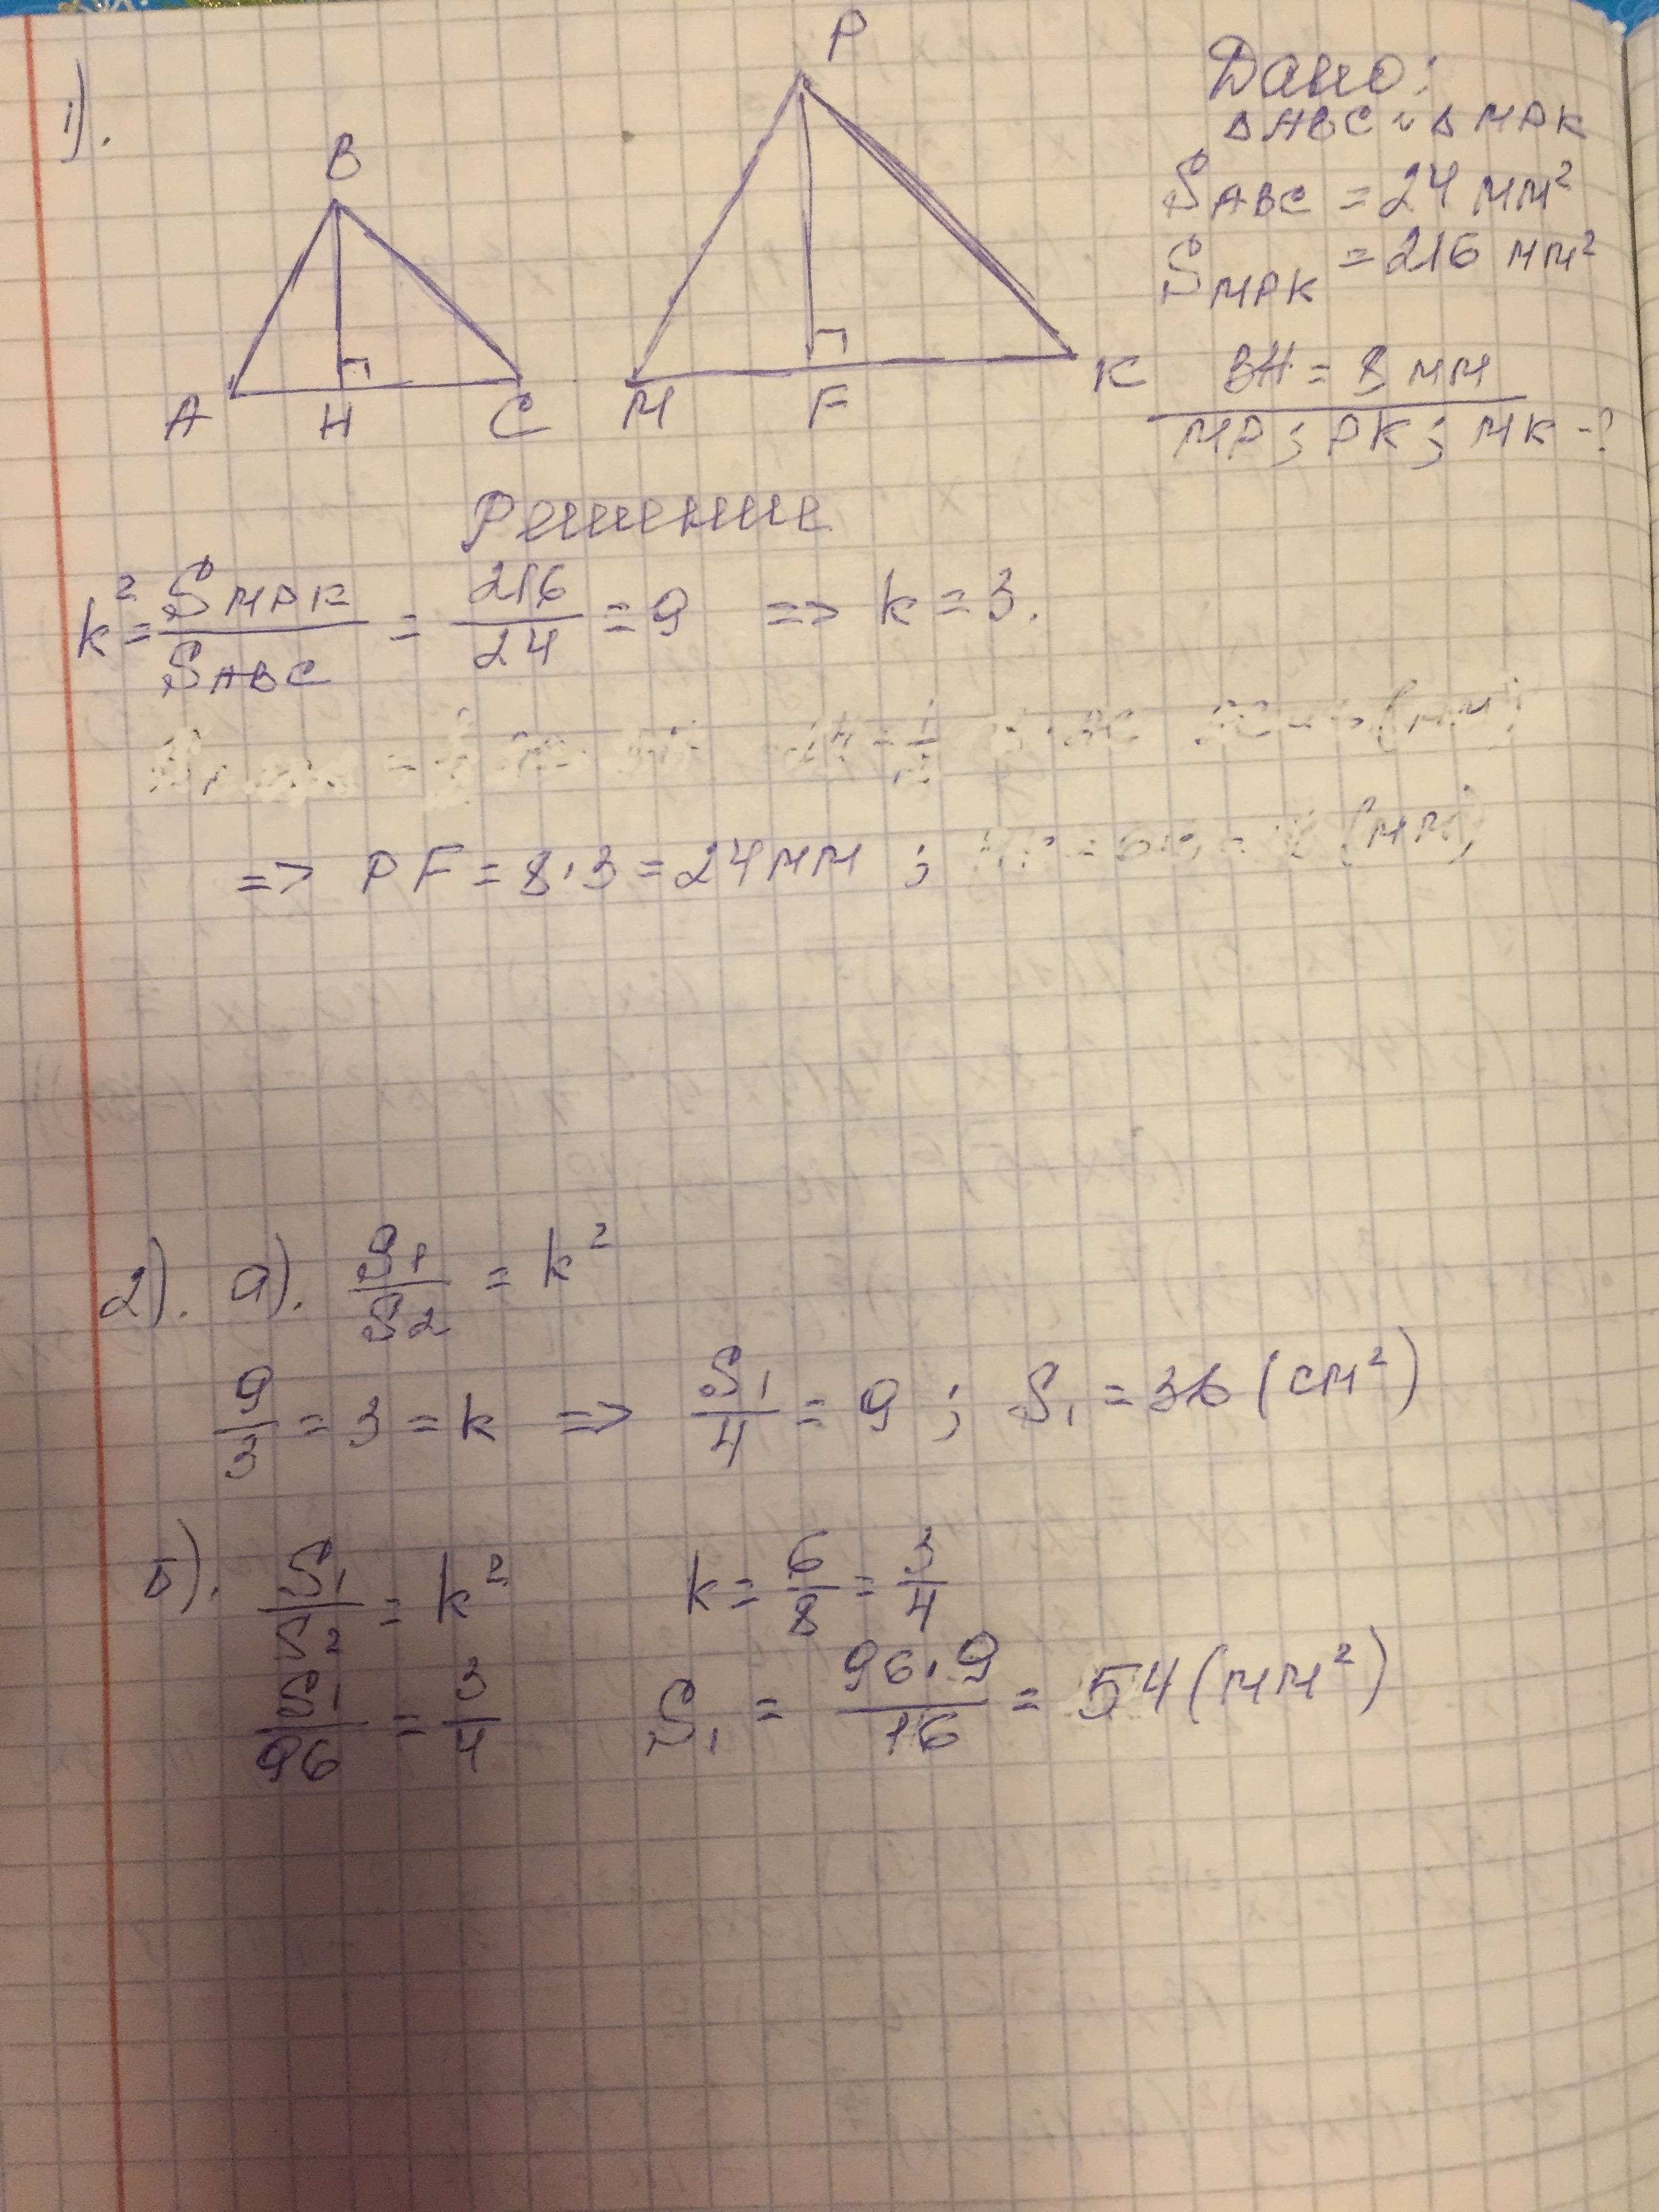 1).
P
B
A H C
M F K
Дано:
Δ ABC ~ Δ MPK
S ABC = 24 мм²
S MPK = 216 мм²
BH = 8 мм
MP; PK; MK - ?
Решение
k² = S MPK / S ABC = 216/24 = 9 => k = 3.
=> PF = 8·3 = 24 мм ; (мм)
2). а). S₁/S₂ = k²
9/3 = 3 = k => S₁/4 = 9 ; S₁ = 36 (см²)
б). S₁/S₂ = k² k = 6/8 = 3/4
S₁/96 = 3/4 S₁ = 96·9/16 = 54 (мм²)